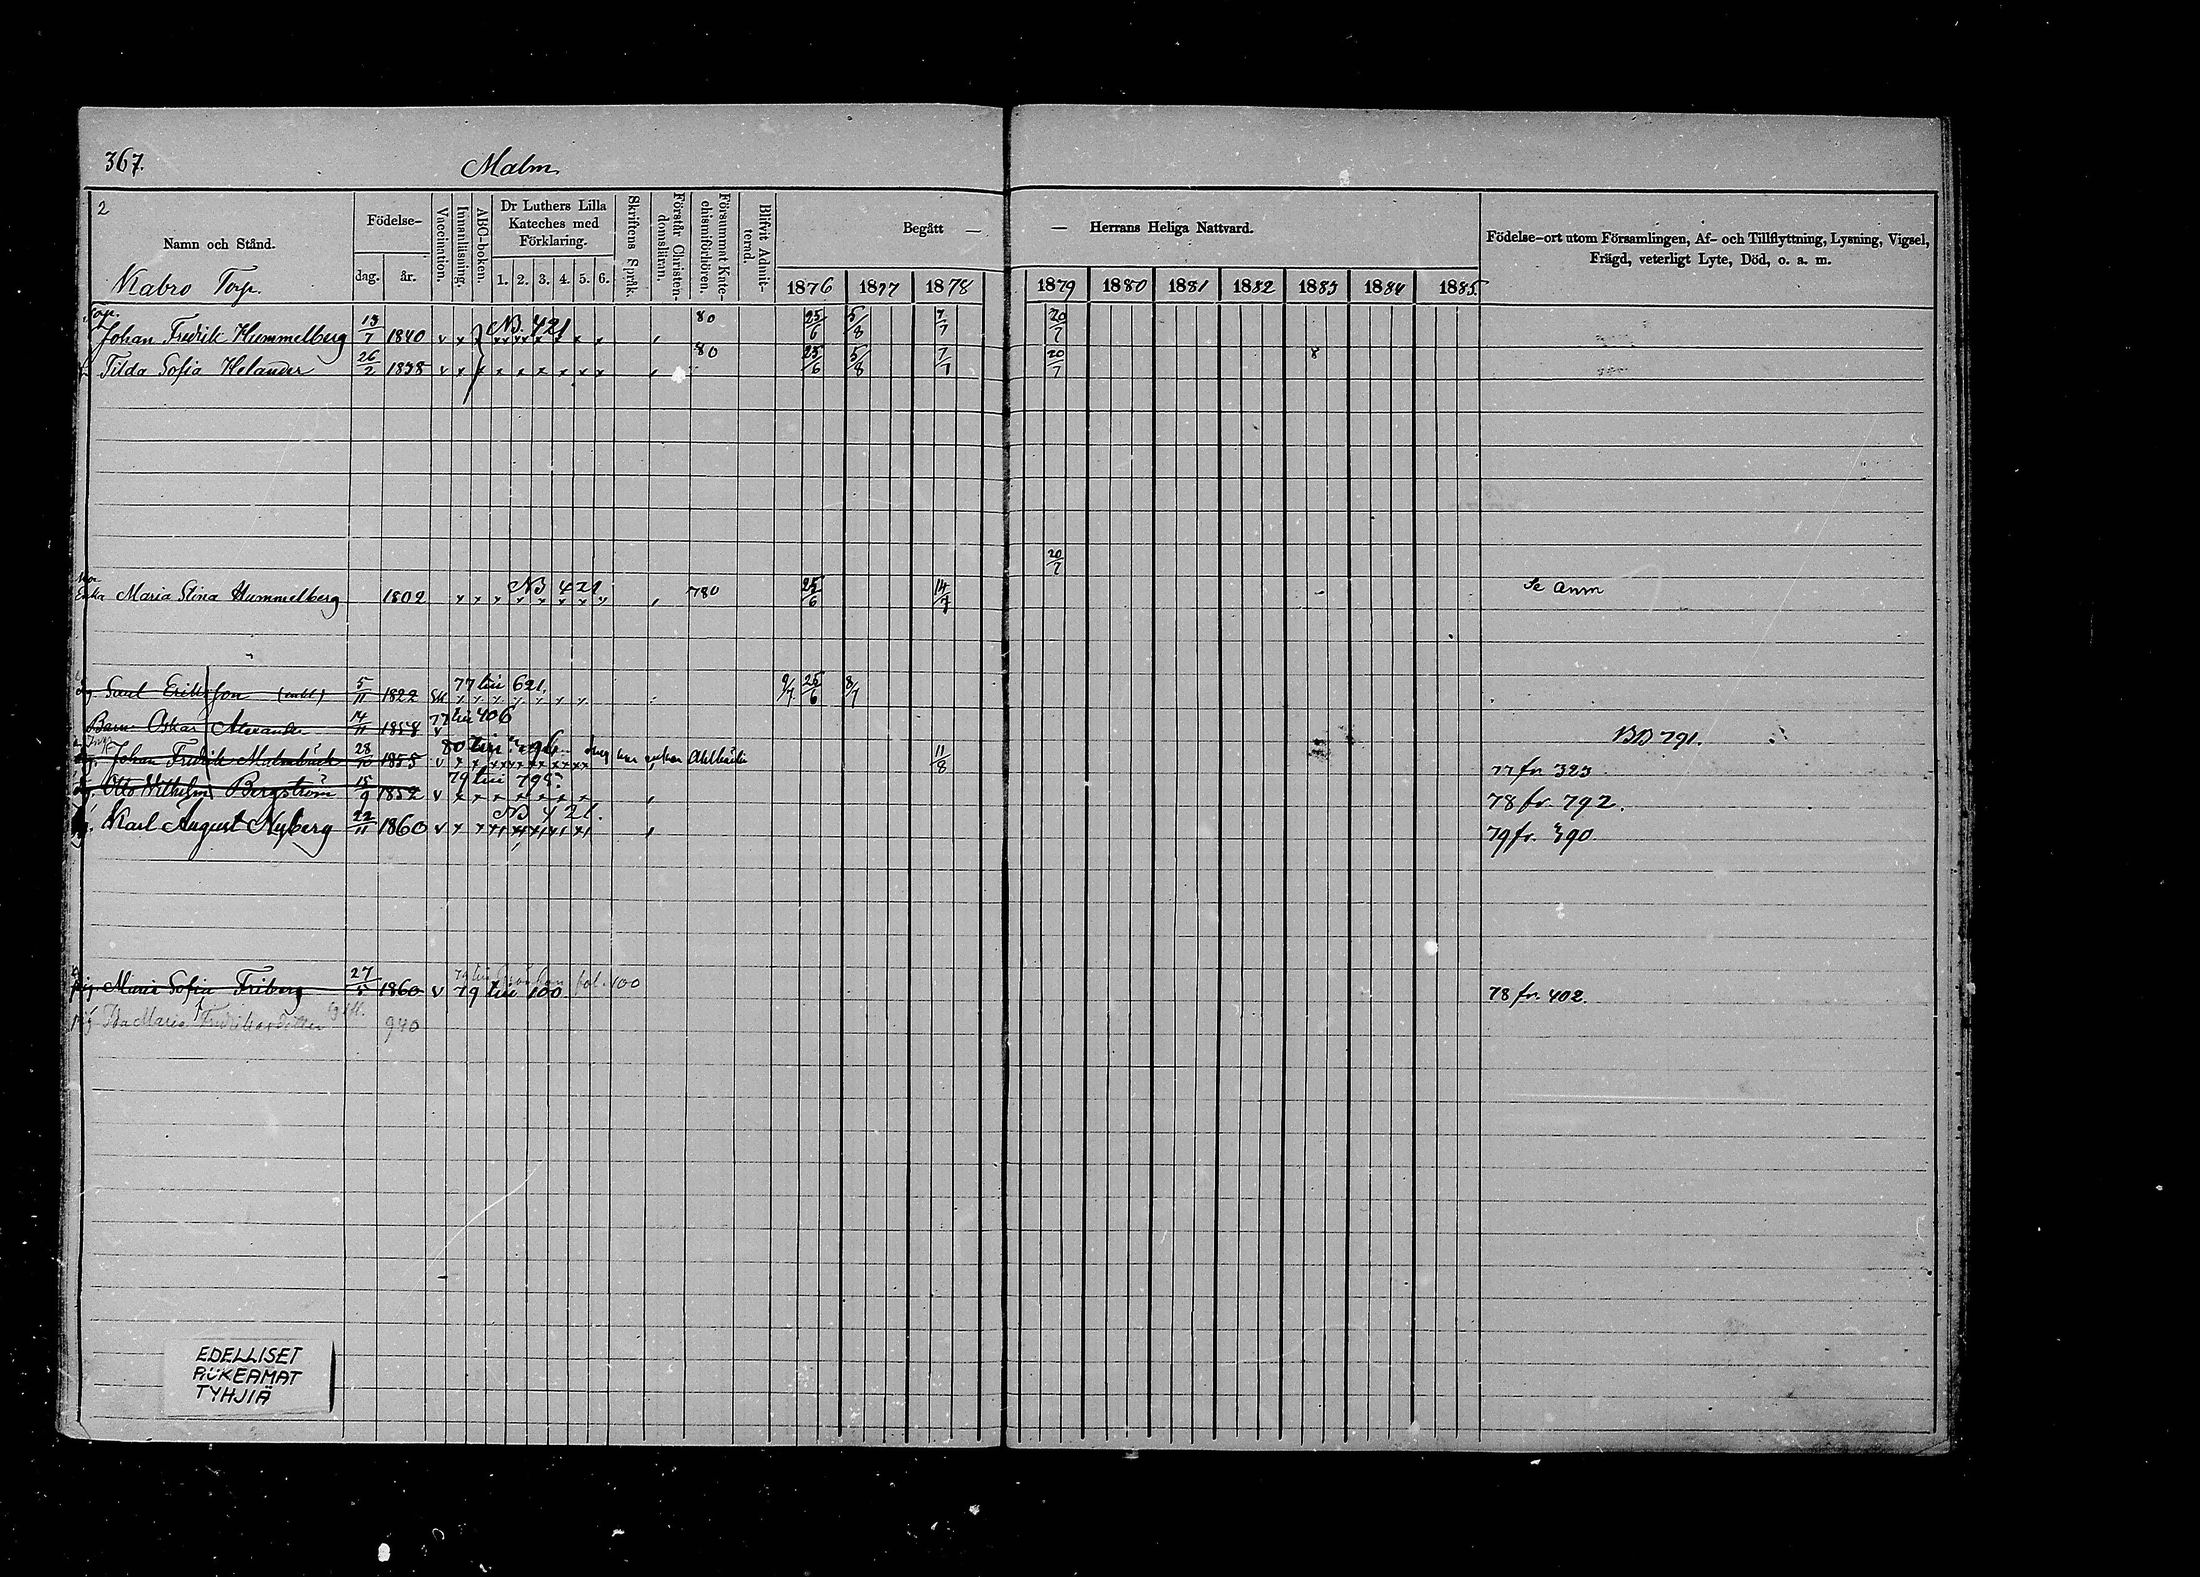 367.
Malm
2
Namn och Stånd.
Födelse-
dag.
år.
Vaccination.
Innanläsning.
ABC-boken.
Dr Luthers Lilla
Kateches med
Förklaring.
1. 2. 3. 4. 5. 6.
Skriftens Språk.
Förstår Christen-
domsläran.
Försummat Kate-
chismiförhören.
Blifvit Admit-
terad.
Begått —
— Herrans Heliga Nattvard.
Födelse-ort utom Församlingen, Af- och Tillflyttning, Lysning, Vigsel,
Frägd, veterligt Lyte, Död, o. a. m.
1876 1877 1878 1879 1880 1881 1882 1883 1884 1885
Kabro Torp.
Torp.
Johan Fredrik Hummelberg 13/7 1840 v NB. 421 80 25/6 5/8 7/7 20/7
Tilda Sofia Helander 26/2 1838 v 80 25/6 5/8 7/7 20/7
20/7
Enka Maria Stina Hummelberg 1802 NB 421 780 25/6 14/7 Se Anm
Saul Eriksson 5/11 1822 77 till 621. 9/7 25/6 8/7
Barn Oskar Alexander 14/11 1858 77 till 406
BB 791.
Johan Fredrik Malmbäck 28/10 1855 v 80 till 396 11/8 77 fr 323
Otto Wilhelm Bergström 15/9 1852 v 79 till 795 78 fr. 792.
Karl August Nyberg 22/11 1860 v NB 421. 79 fr. 390.
pig Maria Sofia Friberg 27/5 1860 v 79 till 100 fol. 100 78 fr. 402.
pig Ida Maria Fredriksdotter 940
EDELLISET
AUKEAMAT
TYHJIÄ